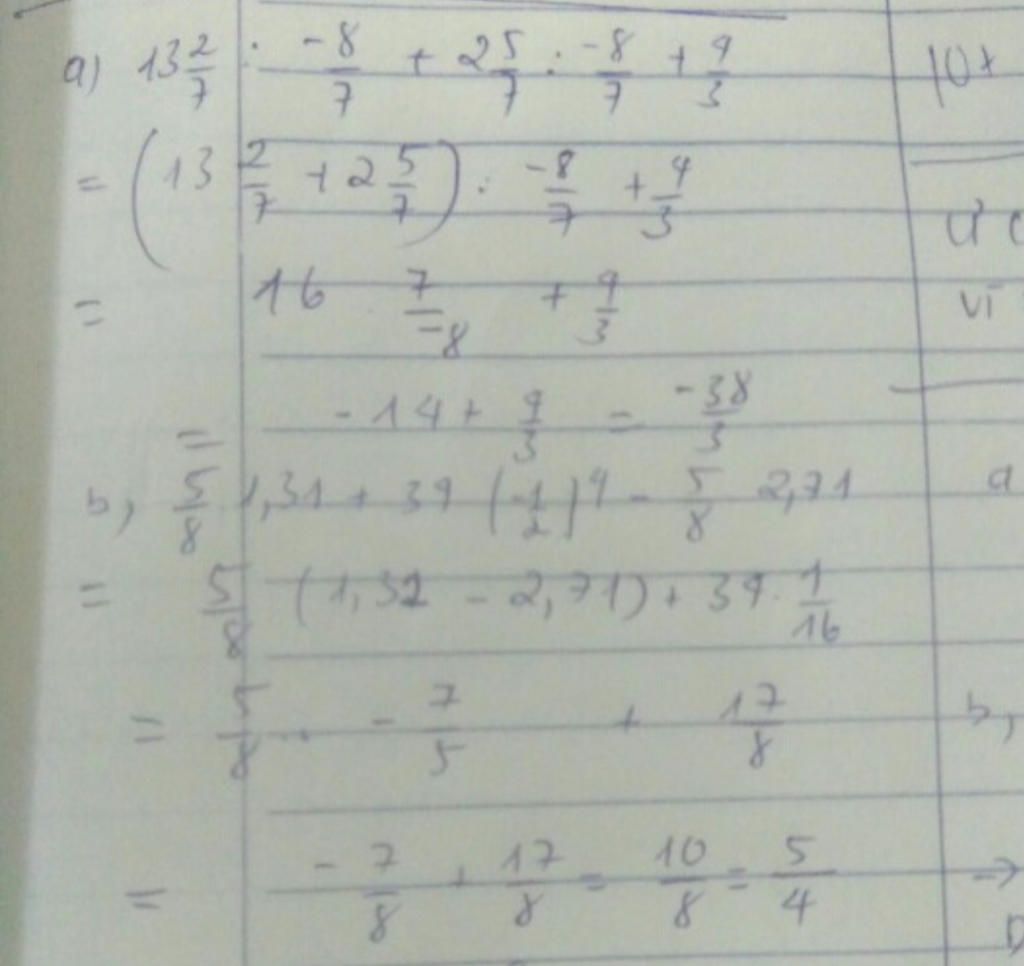 a) 13 2/7 : -8/7 + 2 5/7 : -8/7 + 4/3
= (13 2/7 + 2 5/7) : -8/7 + 4/3
= 16 7/-8 + 4/3
= -14 + 4/3 = -38/3
b, 5/8 1,31 + 34 (1/2)^4 - 5/8 2,71
= 5/8 (1,31 - 2,71) + 34 . 1/16
= 5/8 . - 7/5 + 17/8
= - 7/8 + 17/8 = 10/8 = 5/4
vì
a
b,
→